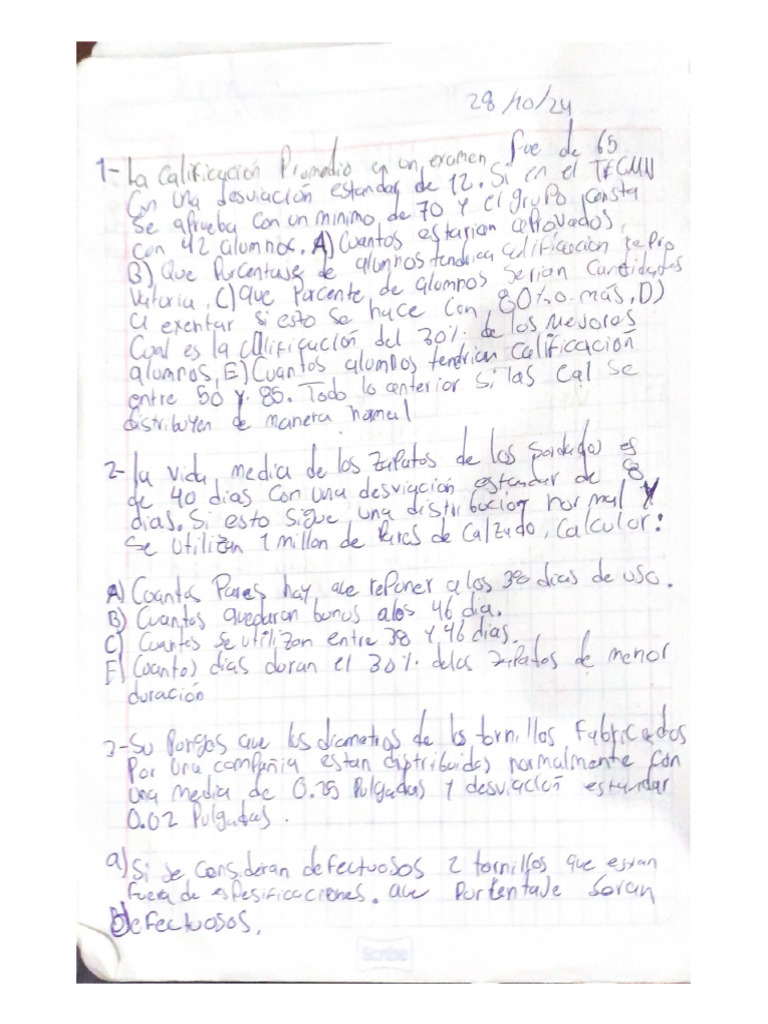 28/10/24
1- La Calificación Promedio en un examen fue de 65
Con una desviación estandar de 12. Si en el TECMN
Se aprueba con un minimo de 70 y el grupo consta
con 42 alumnos. A) Cuantos estarian aprovados,
B) Que Porcentaje de alumnos tendria calificacion repro
vatoria, C) que Porcente de alumnos serian Candidatos
a exentar si esto se hace con 80% o más, D)
Cual es la calificación del 30% de los mejores
alumnos, E) Cuantos alumnos tendrian calificacion
entre 50 y 85. Todo lo anterior si las cal se
distribuyen de manera normal
2- La vida media de los zapatos de los soldados es
de 40 dias con una desviación estandar de 8
dias. Si esto sigue una distribucion normal y
se utilizan 1 millon de Pares de Calzado, Calcular:
A) Cuantos Pares hay que reponer a los 38 dias de uso.
B) Cuantos quedaran bunos alos 46 dia.
C) Cuantos se utilizan entre 38 y 46 dias.
E) Cuantos dias duran el 30% delos zapatos de menor
duración
3- Su Pongos que los diametros de los tornillos fabricados
Por una compañia estan distribuidos normalmente con
una media de 0.25 Pulgadas y desviación estandar
0.02 Pulgadas.
a) Si se consideran defectuosos 2 tornillos que estan
fuera de espesificaciones. que Portentaje seran
Defectuosos.
Scribe